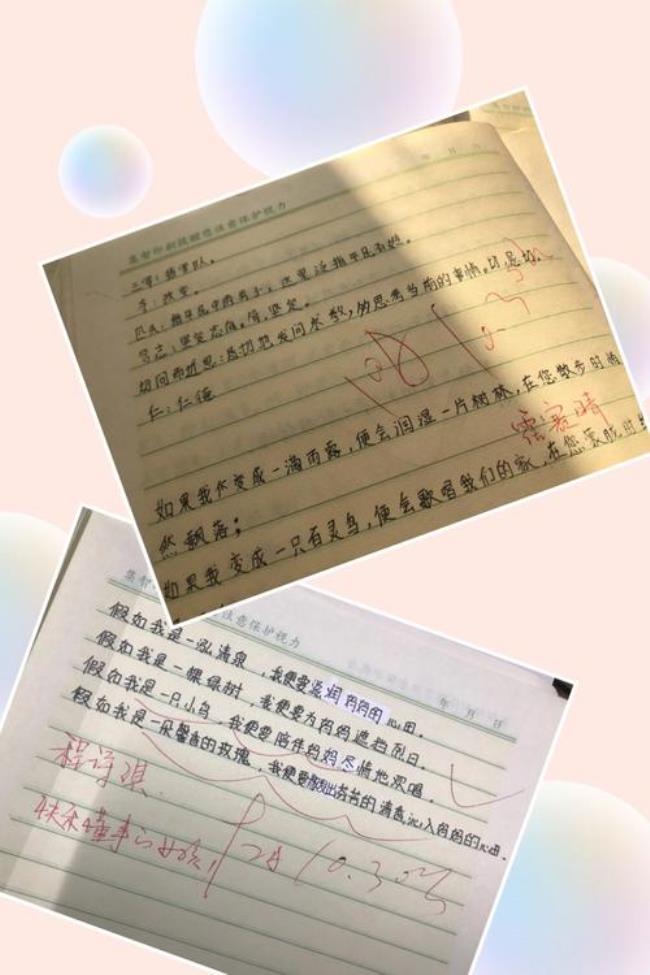 年 月 日
集智印刷提醒您注意保护视力
三军：指军队。
夺：改变。
匹夫：指平民中的男子，这里泛指平民百姓。
笃志：坚定志向。笃，坚定。
切问而近思：恳切地发问求教，多思考当前的事情。切，恳切。
仁：仁德
如果我变成一滴雨露，便会润湿一片树林，在您散步的
然飘落；
如果我变成一只百灵鸟，便会歌唱我们的家，在您
集智
注意保护视力
年 月 日
假如我是一泓清泉，我便要滋润妈妈的心田。
假如我是一棵绿树，我便要为妈妈遮挡烈日。
假如我是一只小鸟，我便要陪伴妈妈尽情地欢唱。
假如我是一朵馨香的玫瑰，我便要散出芬芳的清香沁入妈妈的心田。
程诗淇
女孩！
10.30